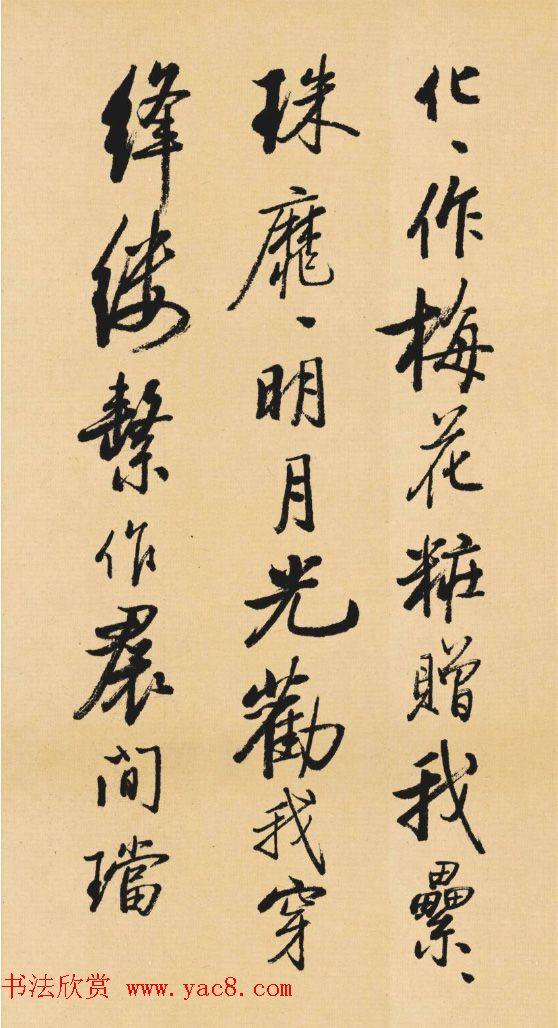 化、作梅花粧贈我纍、
珠靡、明月光勸我穿
絳縷繫作裠間璫
书法欣赏 www.yac8.com